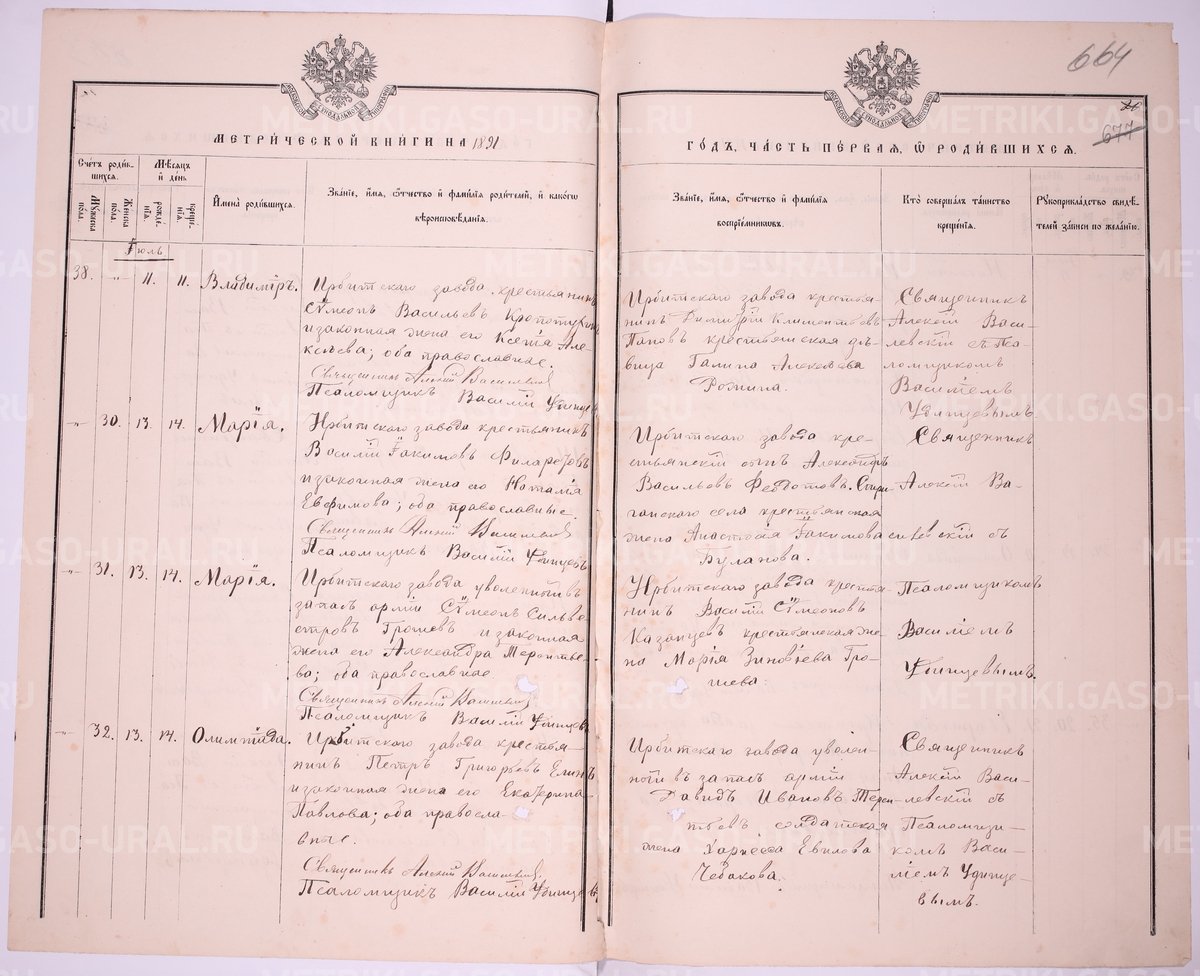 664
677
МЕТРИЧЕСКОЙ КНИГИ НА 1891
ГОДЪ, ЧАСТЬ ПЕРВАЯ, Ѡ РОДИВШИХСЯ.
Счетъ родив-
шихся.
Мѣсяцъ
и день
Мужеска
пола.
Женска
пола.
рожде-
нія
креще-
нія
Имена родившихся.
Званіе, имя, отчество и фамилія родителей, и какого
вѣроисповѣданія.
Званіе, имя, отчество и фамилія
воспріемниковъ.
Кто совершалъ таинство
крещенія.
Рукоприкладство свидѣ-
телей записи по желанію.
Іюль
38. " 11. 11. Владиміръ.
Ирбитскаго завода крестьянинъ
Сѵмеонъ Васильевъ
и законная жена его Ксенія Але-
ксѣева; оба православные.
Священникъ Алексій Василевскій
Псаломщикъ Василій Удинцевъ
Ирбитскаго завода крестья-
нинъ Димитрій Климентьевъ
Пановъ крестьянская дѣ-
вица Галина Алексѣева
Рожина.
Священникъ
Алексій Васи-
левскій съ Пса-
ломщикомъ
Василіемъ
Удинцевымъ
" 30. 13. 14. Марія.
Ирбитскаго завода крестьянинъ
Василій Іакимовъ Филаретовъ
и законная жена его Наталія
Евфимова; оба православные.
Священникъ Алексій Василевскій
Псаломщикъ Василій Удинцевъ
Ирбитскаго завода кре-
стьянскій сынъ Александръ
Васильевъ Федотовъ.
ганскаго села крестьянская
жена Анастасія Іакимова
Буланова.
Священникъ
Алексій Ва-
силевскій съ
" 31. 13. 14. Марія.
Ирбитскаго завода уволенный въ
запасъ арміи Сѵмеонъ Сильве-
стровъ Грошевъ и законная
жена его Александра Терентье-
ва; оба православные
Священникъ Алексій Василевскій
Псаломщикъ Василій Удинцевъ
Ирбитскаго завода крестья-
нинъ Василій Сѵмеоновъ
Казанцевъ крестьянская же-
на Марія Зиновіева Гро-
шева.
Псаломщикомъ
Василіемъ
Удинцевымъ.
" 32. 13. 14. Олимпіада.
Ирбитскаго завода крестья-
нинъ Петръ Григорьевъ
и законная жена его Екатерина
Павлова; оба правосла-
вные.
Священникъ Алексій Василевскій
Псаломщикъ Василій Удинцевъ
Ирбитскаго завода уволен-
ный въ запасъ арміи
Давидъ Ивановъ Терен-
тьевъ солдатская
жена
Чебакова.
Священникъ
Алексій Васи-
левскій съ
Псаломщи-
комъ Васи-
ліемъ Удинце-
вымъ.
METRIKI.GASO-URAL.RU